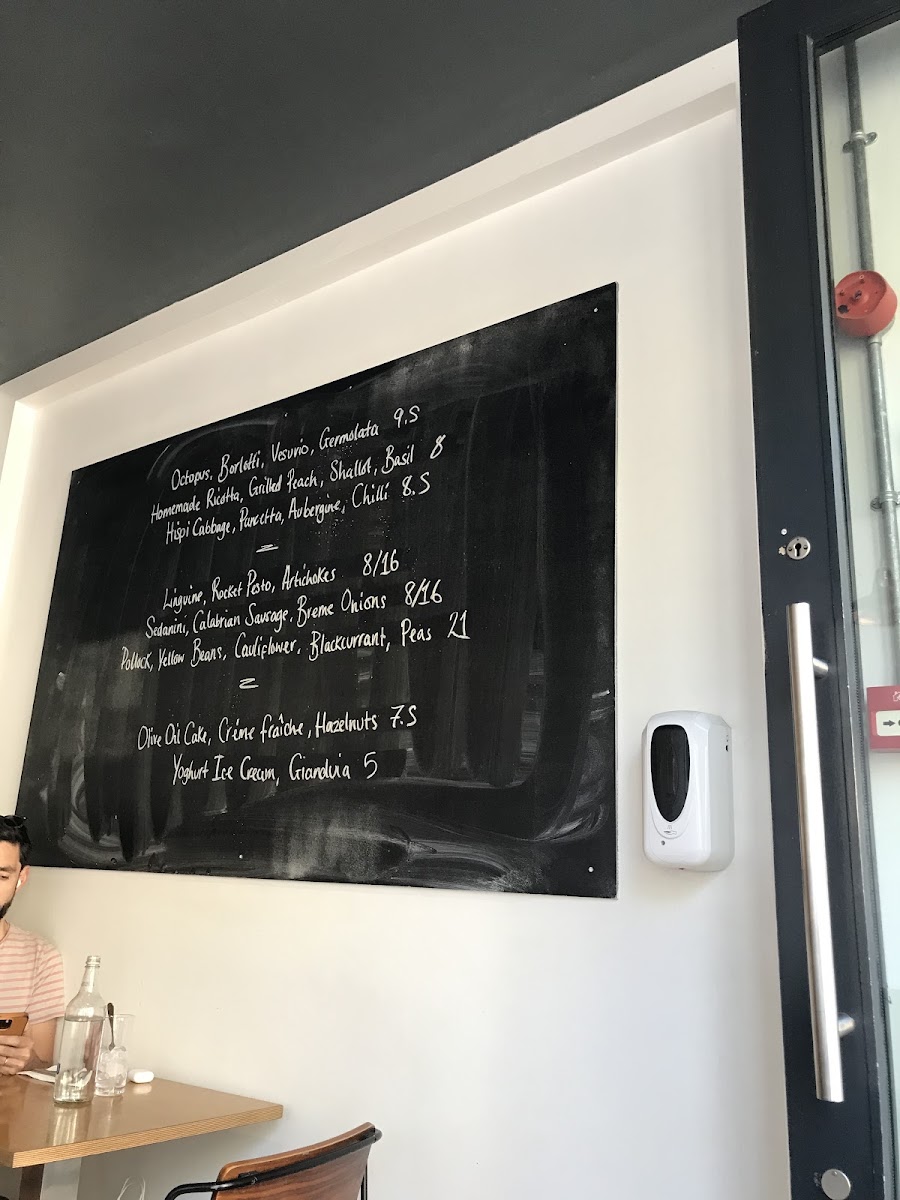 Octopus, Borlotti, Vesuvio, Germolata 9.5
Homemade Ricotta, Grilled Peach, Shallot, Basil 8
Hispi Cabbage, Pancetta, Aubergine, Chilli 8.5
Linguine, Rocket Pesto, Artichokes 8/16
Sedanini, Calabrian Sausage, Breme Onions 8/16
Pollock, Yellow Beans, Cauliflower, Blackcurrant, Peas 21
Olive Oil Cake, Créme fraîche, Hazelnuts 7.5
Yoghurt Ice Cream, Gianduia 5